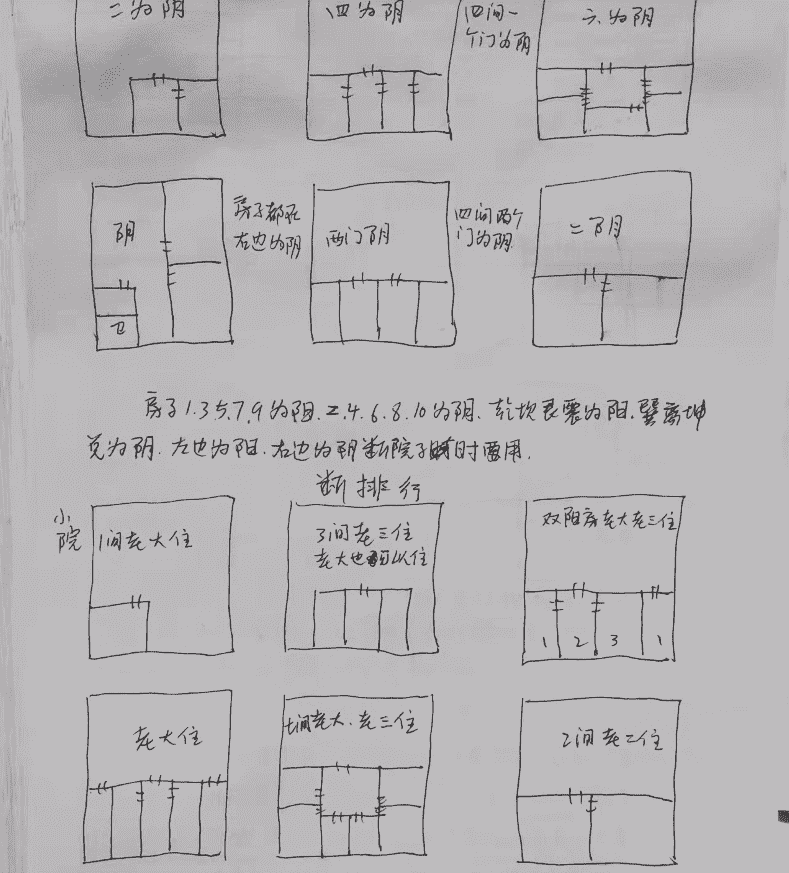 二为阴
四为阴
四间一
个门为阴
六为阴
阴
卫
房子都在
右边为阴
两门阴
四间两个
门为阴
二阴
房子1.3.5.7.9为阳.2.4.6.8.10为阴.乾坎艮震为阳.巽离坤
兑为阴.左边为阳.右边为阴断院子时要用.
断排行
小
院
1间老大住
3间老三住
老大也可以住
双阳房老大老三住
1 2 3 1
老大住
七间老大.老三住
2间老二住